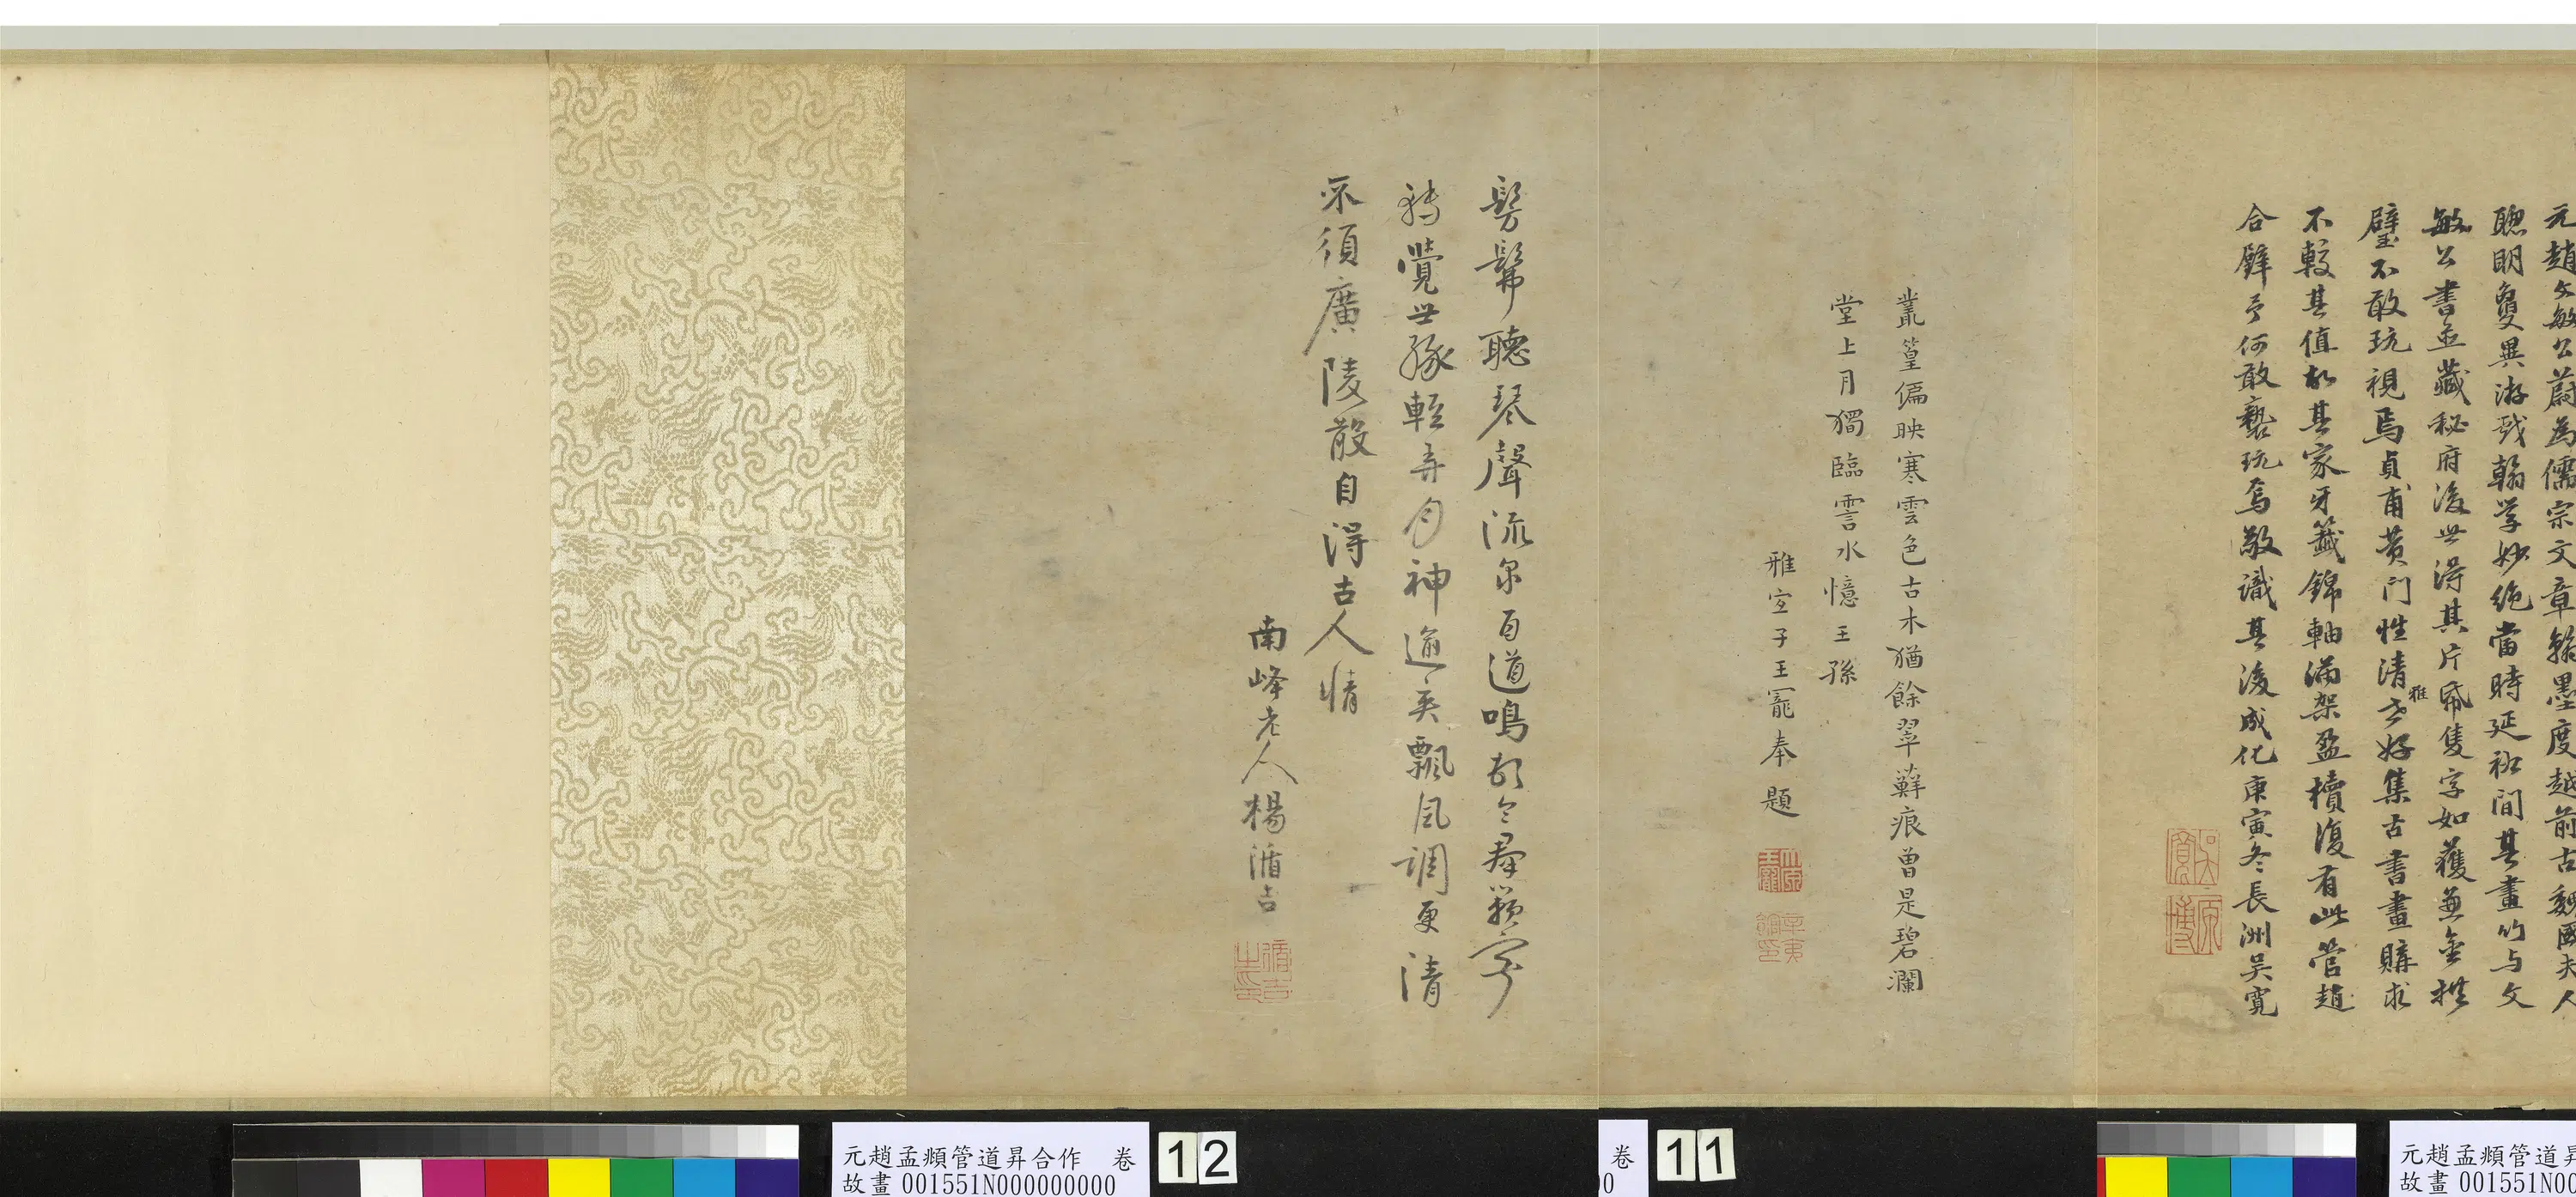 元趙文敏公蔚為儒宗文章翰墨度越前古魏國夫人
聰明敻異游戲翰学妙絶當時延祐間其畫竹与文
敏公書並藏秘府後世得其片帋隻字如獲蒼拱
璧不敢玩視焉貞甫黄門性清雅好集古書畫購求
不較其值故其家牙籤錦軸滿架盈櫝復有此管趙
合璧予何敢褻玩焉敬識其後成化庚寅冬長洲吴寛
吳寬
原博
叢篁偏映寒雲色古木猶餘翠蘚痕曾是碧瀾
堂上月獨臨霅水憶王孫
雅宜子王寵奉題
王寵
辛夷館印
髣髴聽琴聲流泉百道鳴頓令羣籟寂
稍覺世緣輕弄月神逾爽飄風調更清
不須廣陵散自得古人情
南峰老人楊循吉
循吉之印
元趙孟頫管道昇合作 卷
故畫 001551N000000000
12
卷
00
11
元趙孟頫管道昇
故畫 001551N00